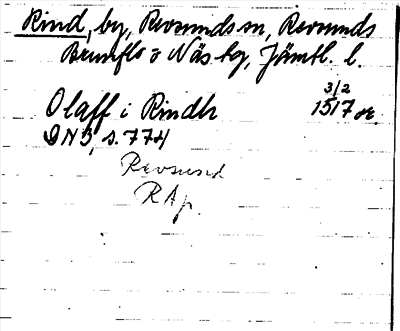 Rind, by, Revsunds sn, Revsunds
Brunflo o Näs tg, Jämtl. l.
Olaff i Rindh 3/2 1517 or.
DN3, s. 774
Revsund
RAp.